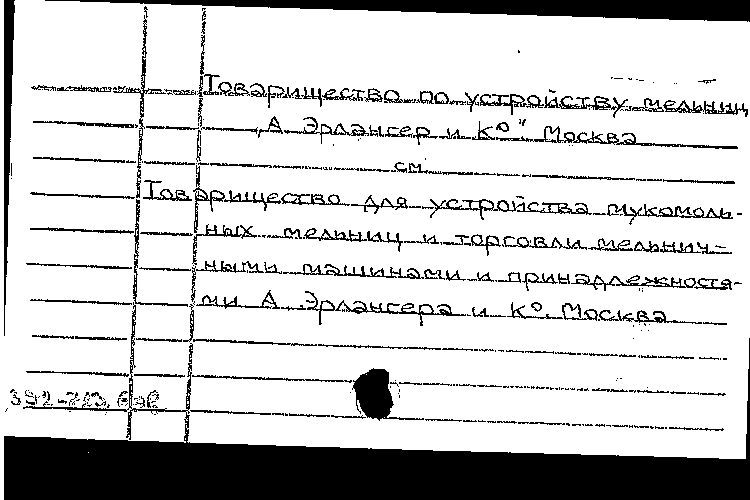 Товарищество по устройству мельниц
„А. Эрлангер и К⁰". Москва
см.
Товарищество для устройства мукомоль-
ных мельниц и торговли мельнич-
ными машинами и принадлежностя-
ми А. Эрлангера и К⁰. Москва.